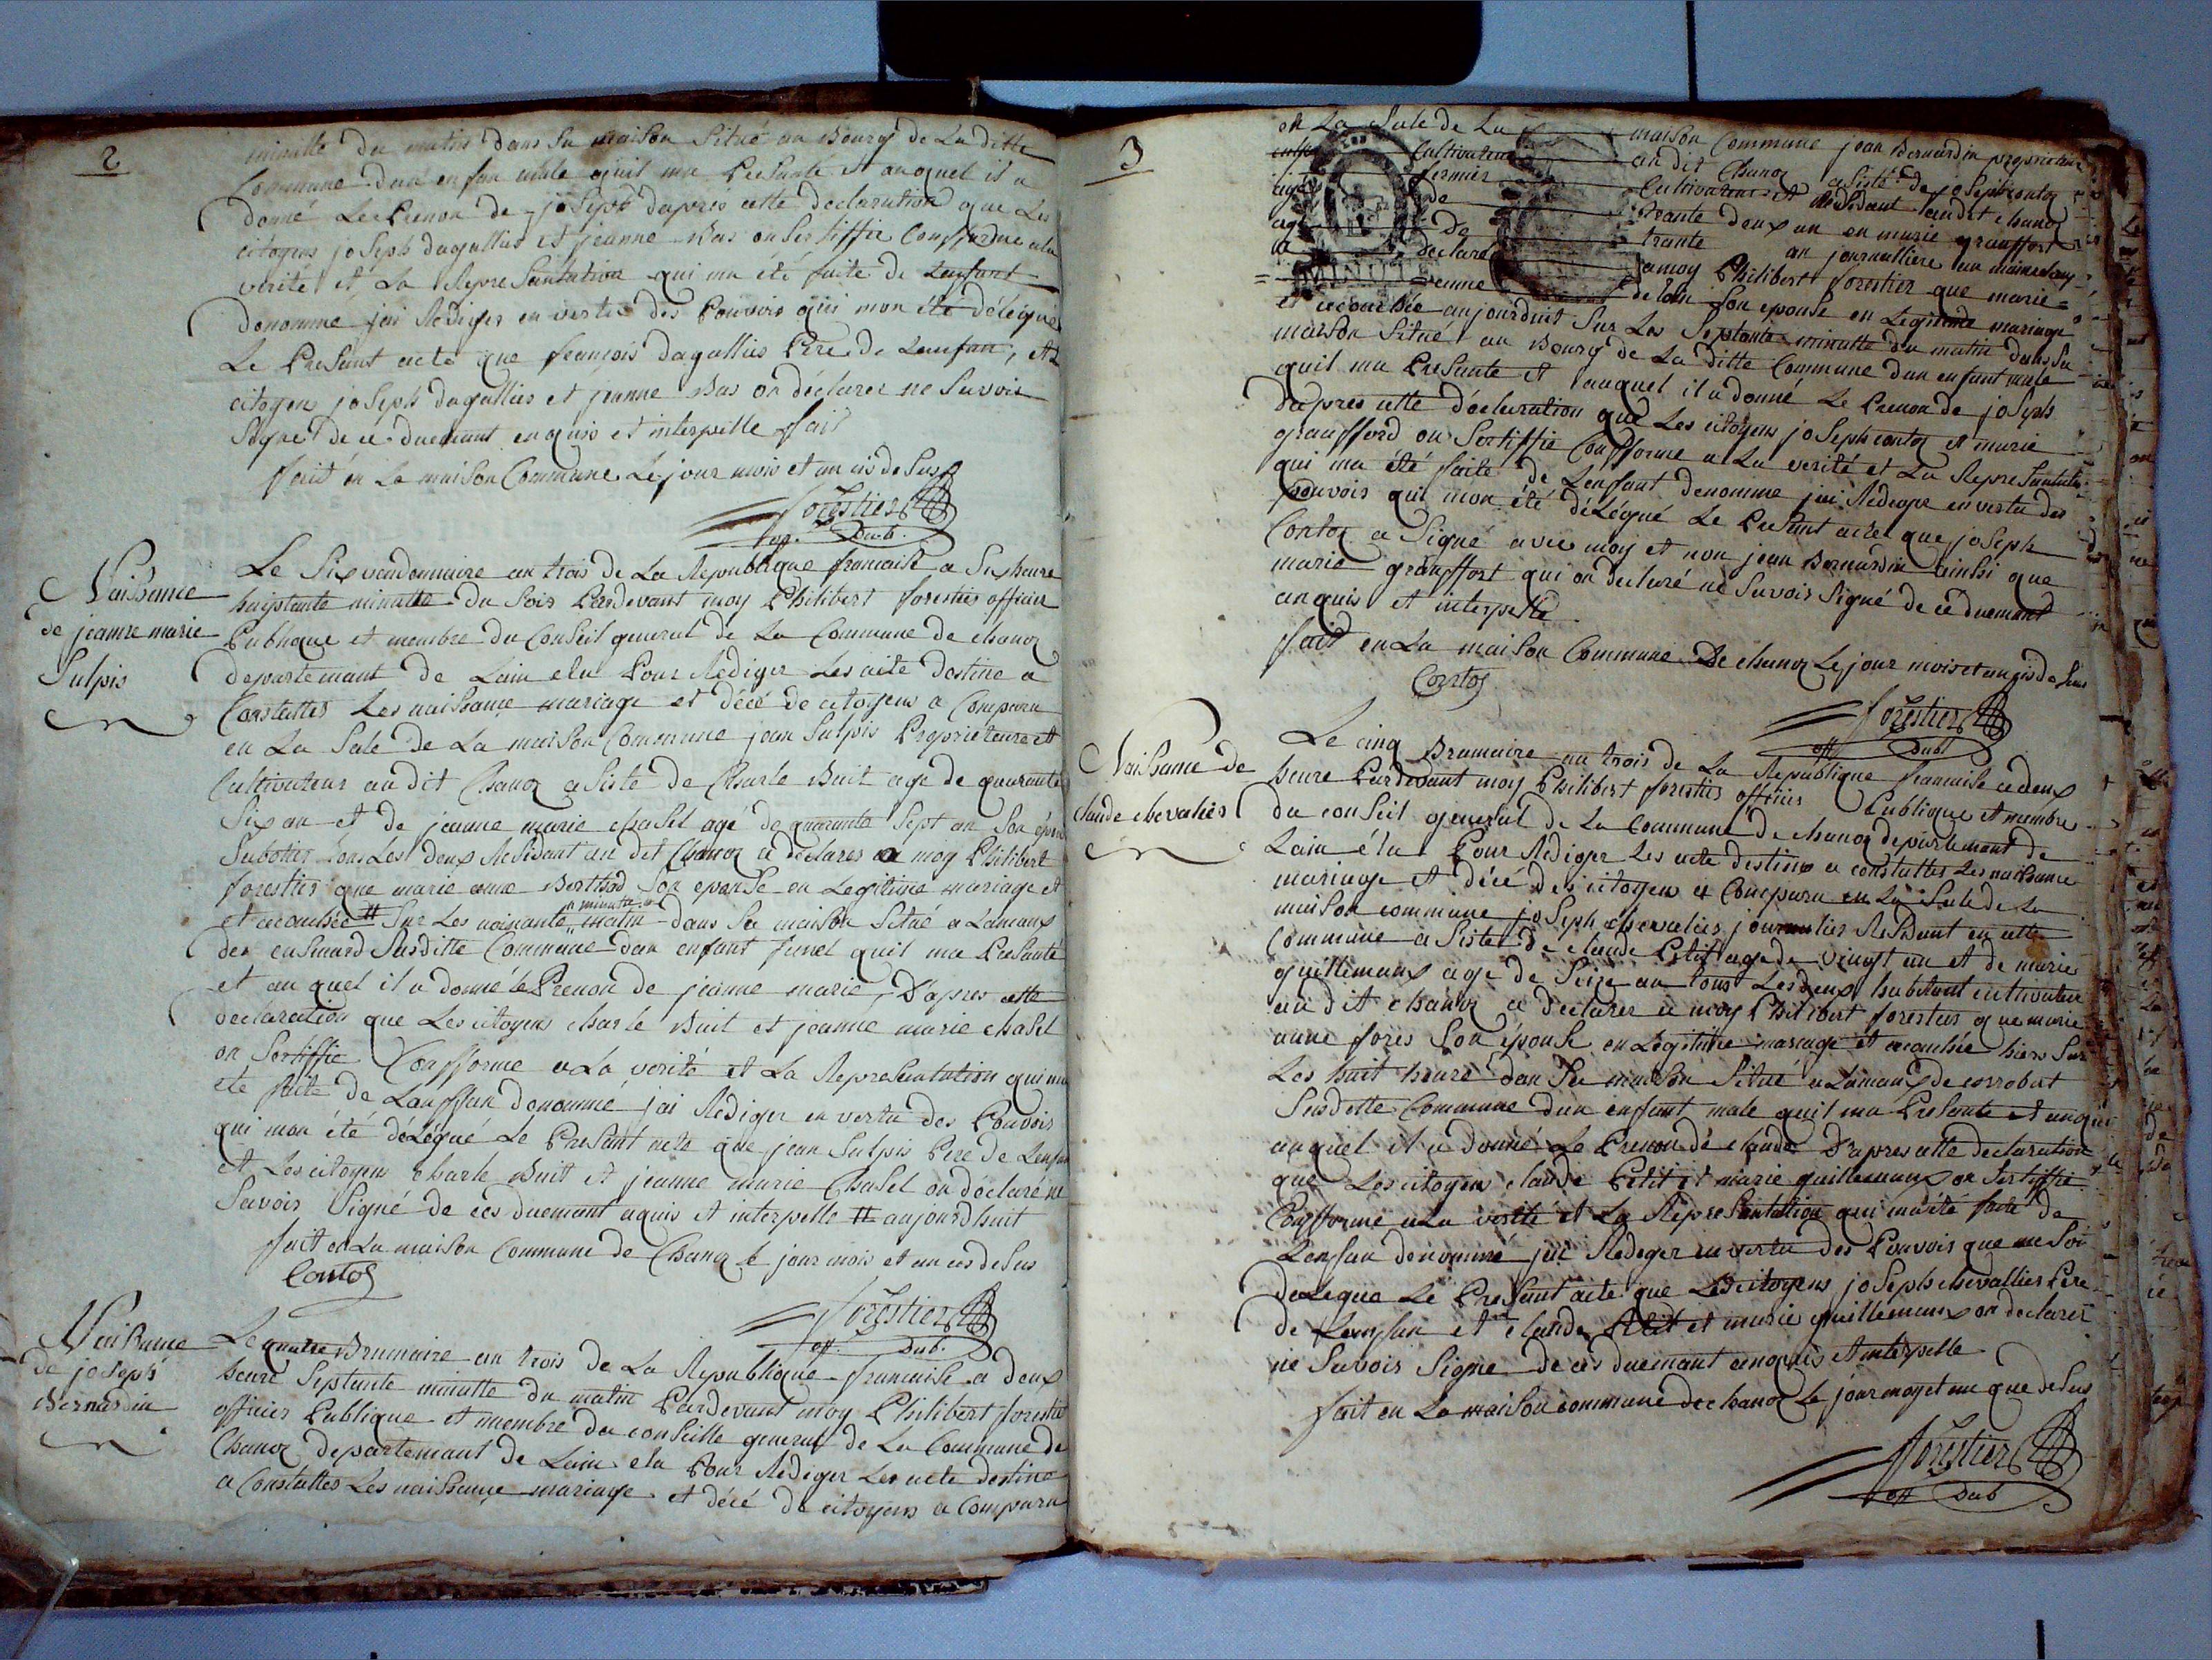 2
minutte du matin dans sa maison Situé au Bourg de La ditte
Commune dun enfan male quil ma Presanté et auquel il a
donné Le Prenon de joSeph dapres cette declaration que Les
citoyens joSeph dagallier et jeanne Bas on Sertiffie Confforme a la
verité et La RepreSantation qui ma été faite de Lenfant
denomme jai Rediger en vertu des Pouvoirs qui mon été délégué
Le PreSant acte que françois dagallier Pere de Lanfan, et Le
citoyen joSeph dagallier et jeanne Bas on déclarer ne Savoir
Signé de ce duemant enquis et interpelle fait
fait en La maiSon Commune Le jour mois et an cis deSus
forestier
off. Pub.
Naissance
de jeanne marie
Sulpis
Le Six vendemiaire an trois de La Republique francaise a Six heure
huiptante minutte du Soir Pardevant moy Philibert forestier officier
Publique et membre du ConSeil general de La Commune de chanoz
departemant de Lain elu Pour Rediger Les acte destine a
Constatter Les naissance mariage et décé de citoyens a Comparu
en La Sale de La maiSon Commune jean Sulpis Proprieteure et
Cultivateur au dit Chanoz aSisté de Charle Buit age de quarante
Six an et de jeanne marie chaSel agé de quarante Sept an Son
Sabotier tous Les deux ReSidant au dit Chanoz a déclarer a moy Philibert
forestier que marie anne Borthod Son epouSe en Legitime mariage et
et acouchée # Sur Les noinante minutte matin dans Sa maiSon Situé a Lamaux
den enSuard Susditte Commune dun enfant femel quil ma PreSanté
et au quel il a donné Le Prenon de jeanne marie, D'apres cette
declaration que Les citoyens charle Buit et jeanne marie chaSel
on Sertiffie Confforme a La verité et La RepreSentation qui ma
eté faite de Lanffan denommé jai Rediger en vertu des Pouvoir
qui mon été délégué Le PreSant acte que jean Sulpis Pere de Lenfan
et Les citoyens Charle Buit et jeanne marie ChaSel on déclaré ne
Savoir Signé de ces duemant aquis et interpelle # aujourdhuit
fait en La maiSon Commune de Chanoz Le jour mois et an cis deSus
Contoz
forestier
off. Pub.
Naissance
de joSeph
Bernardin
Le quatre Brumaire an trois de La Republique francaise a deux
heure Septante minutte du matin Pardevant moy Philibert forestier
officier Publique et membre du conSeille general de La Commune de
Chanoz departemant de Lain elu Pour Rediger Les acte destine
a Constatter Les naissance mariage et décé de citoyens a Comparu
3
en La Sale de La maiSon Commune jean Bernardin proprietaire
Cultivateur au dit Chanoz aSisté de joSeph contoz
fermier Cultivateur et reSidant audit chanoz
agé de trante deux an en marie grauffort
age de trante an journalliere au maime Lieu
a declaré a moy Philibert forestier que marie
MINUTE
Son epouSe en Legitime mariage
et acouchée aujourdhuit Sur Les Septante minutte du matin dans Sa
maiSon Situé au Bourg de La ditte Commune dun enfant male
quil ma PreSante et auquel il a donné Le Prenon de joSeph
dapres cette déclaration que Les citoyens joSeph contoz et marie
graufford on Sertiffie Confforme a La verité et La RepreSantation
qui ma été faite de Lenfant denomme jai Redeger en vertu des
pouvoir qui mon été délégué Le PreSant acte que joSeph
Contoz a Signé avec moy et non jean Bernardin ainsi que
marie grauffort qui on declaré ne Savoir Signé de ce duemant
anquis et interpelle
fait en La maiSon Commune De chanoz Le jour mois et an cis deSus
Contoz
forestier
off Pub
Naissance de
claude chevalier
Le cinq Brumaire an trois de La Republique francaise a deux
heure Pardevant moy Philibert forestier officier Publique et membre
du conSeil general de La Commune de chanoz departemant de
Lain élu Pour Rediger Les acte destine a constatter Les naissance
mariage et décé des citoyens a Comparu en La Sale de La
maiSon commune joSeph chevalier journalier ReSidant en cette
Commune aSiste de claude Petit age de vingt an et de marie
guillemaux age de Seize an tous Les deux habitant cultivateur
au dit chanoz a déclarer a moy Philibert forestier que marie
anne fores Son épouSe en Legitime mariage et acouchée hier Sur
Les huit heure dan Sa maiSon Situé a Lamaux de corrobert
Susditte Commune dun enfant male quil ma PreSente et auquel
auquel il a donné Le Prenon de claude D'apres cette declaration
que Les citoyens claude Petit et marie guillemaux on Sertiffie
Confforme a La verité et La RepreSantation qui ma été faite de
Lenffan denommé jai Redeger en vertu des Pouvoir que me Soi
deLegue Le PreSant acte que Les citoyens joSeph chevallier Pere
de Lenffan et claude Petit et marie guillémaux on declarer
ne Savoir Signe de ces duemant anquis et interpelle
fait en La maiSon commune de chanoz Le jour moy et an que deSus
forestier
off Pub